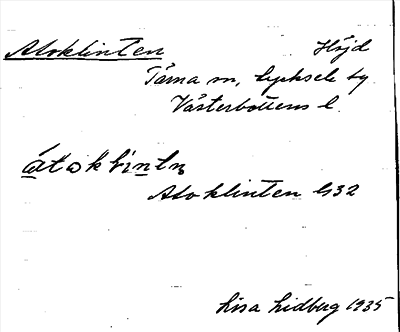 Atoklinten Höjd
Tärna sn, Lycksele tg
Västerbottens l.
átokḷintn
Atoklinten G32
Lisa Lidberg 1935